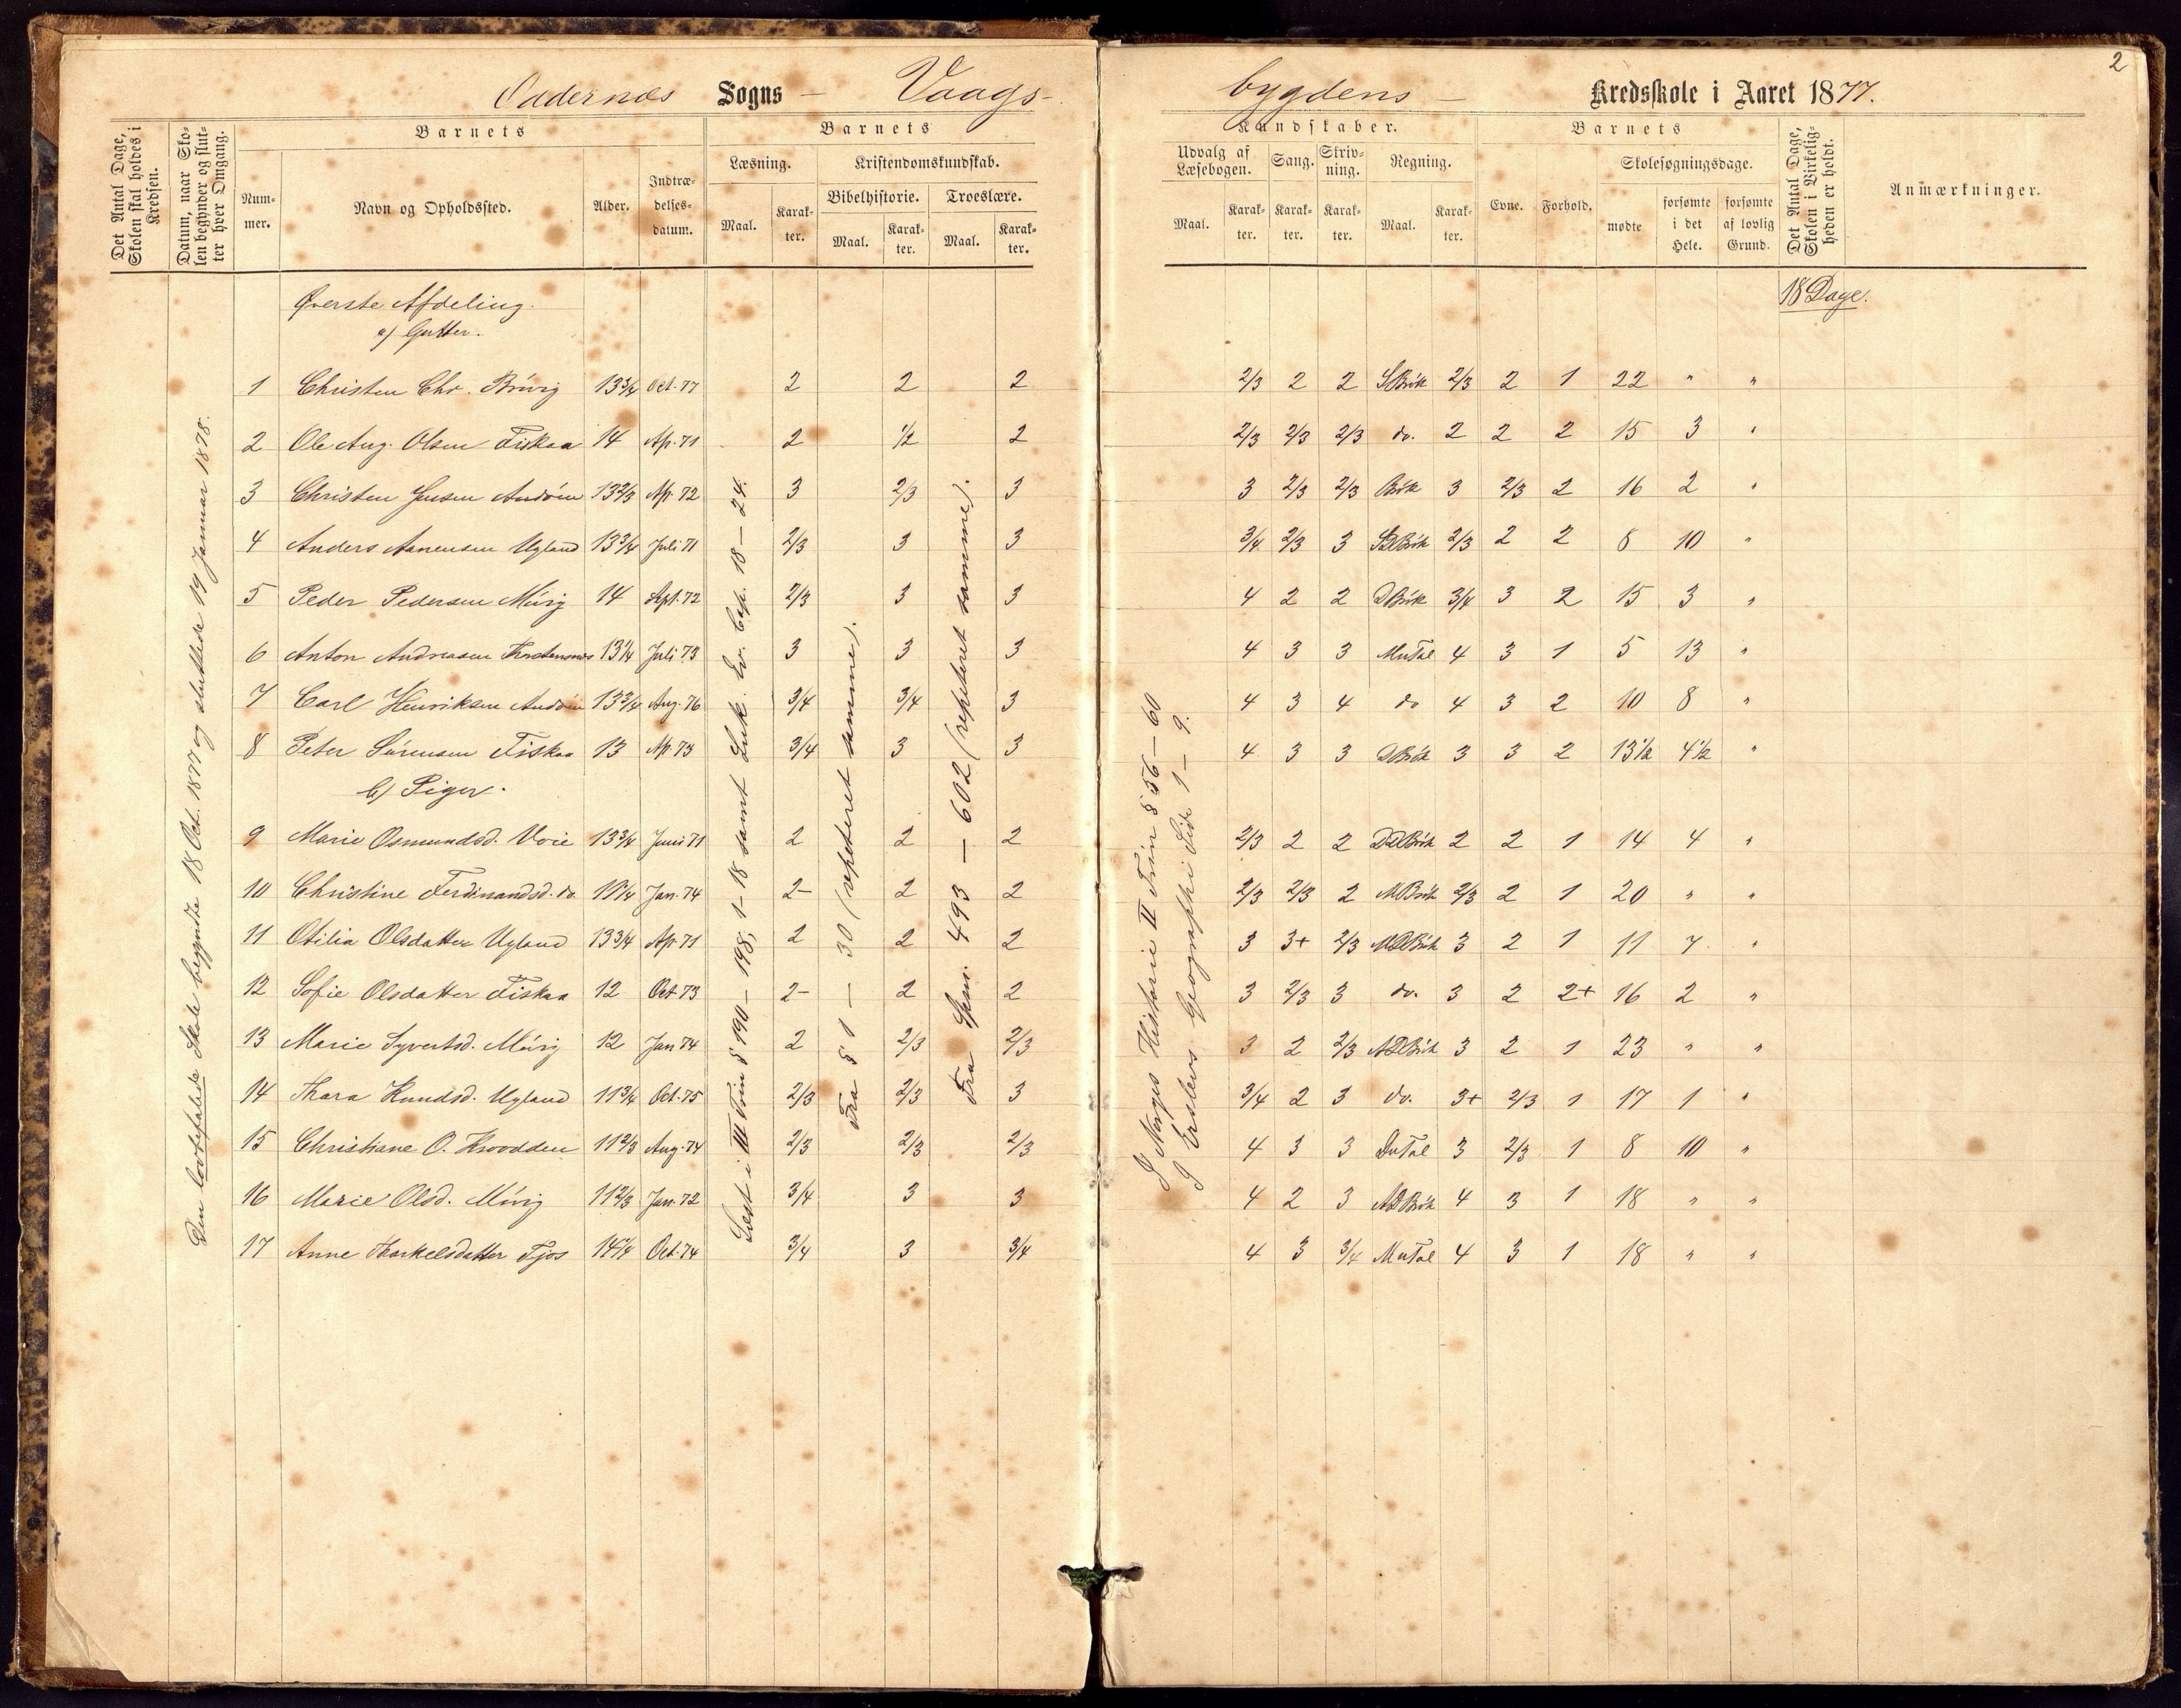 2
Oddernes Sogns – Vaags-
bygdens – Kredsskole i Aaret 1877.
Det Antal Dage, Skolen skal holdes i Kredsen.
Datum, naar Skolen begynder og slutter hver Omgang.
Barnets
Nummer.
Navn og Opholdssted.
Alder.
Indtrædelsesdatum.
Barnets
Læsning.
Maal.
Karakter.
Kristendomskundskab.
Bibelhistorie.
Maal.
Karakter.
Troeslære.
Maal.
Karakter.
Kundskaber.
Udvalg af Læsebogen.
Maal.
Karakter.
Sang.
Karakter.
Skrivning.
Karakter.
Regning.
Maal.
Karakter.
Barnets
Evne.
Forhold.
Skolesøgningsdage.
mødte
forsømte i det Hele.
forsømte af lovlig Grund.
Det Antal Dage, Skolen i Virkeligheden er holdt.
Anmærkninger.
Øverste Afdeling.
18 Dage.
a) Gutter.
1 Christen Chr. 13 3/4 Oct. 77 2 2 2 2/3 2 2 SBrök 2/3 2 1 22 " "
2 Ole Aug. Olsen Fiskaa 14 Ap. 71 2 1/2 2 2/3 2/3 2/3 do. 2 2 2 15 3 "
3 Christen Jensen Andöen 13 2/3 Ap. 72 3 2/3 3 3 2/3 2/3 Brök 3 2/3 2 16 2 "
4 Anders Aanensen Ugland 13 3/4 Juli 71 2/3 3 3 3/4 2/3 3 2/3 2 2 8 10 "
5 Peder Pedersen 14 Sept. 72 2/3 3 3 4 2 2 DBrök 3/4 3 2 15 3 "
6 Anton Andreasen 13 1/4 Juli 73 3 3 3 4 3 3 MuTal 4 3 1 5 13 "
7 Carl Henriksen Andöen 13 3/4 Aug. 76 3/4 3/4 3 4 3 4 do 4 3 2 10 8 "
8 Peter Sörensen Fiskaa 13 Ap. 73 3/4 3 3 4 3 3 DBrök 3 3 2 13 1/2 4 1/2 "
b) Piger.
9 Marie Osmundsd. Voie 13 3/4 Juni 71 2 2 2 2/3 2 2 2 2 1 14 4 "
10 Christine Ferdinandsd. do. Jan. 74 2- 2 2 2/3 2/3 2 MBrök 2/3 2 1 20 " "
11 Otilia Olsdatter Ugland 13 3/4 Ap. 71 2 2 2 3 3+ 2/3 3 2 1 11 7 "
12 Sofie Olsdatter Fiskaa 12 Oct 73 2- 2 2 3 2/3 3 do. 3 2 2+ 16 2 "
13 Marie Syvertsd. 12 Jan 74 2 2/3 2/3 3 2 2/3 3 2 1 23 " "
14 Thora Knudsd. Ugland 11 3/4 Oct. 75 2/3 2/3 3 3/4 2 3 do. 3+ 2/3 1 17 1 "
15 Christiane O. Kroodden 11 2/3 Aug. 74 2/3 2/3 2/3 4 3 3 3 2/3 1 8 10 "
16 Marie Olsd. 11 2/3 Jan. 72 3/4 3 3 4 2 3 4 3 1 18 " "
17 Anne Thorkelsdatter Fjos 14 1/4 Oct. 74 3/4 3 3/4 4 3 3/4 MuTal 4 3 1 18 " "
Den lovbefalede Skole begyndte 18 Oct. 1877 og sluttede 19 Januar 1878.
Læst i III Trin § 190 – 198, 1 – 18 samt Luk. Ev. Cap. 18 – 24.
Fra § 1 – 30 (repeteret samme).
Fra Spm. 493 – 602 (repeteret samme).
I Norges Historie II Trin § 56 – 60
I Erslevs Geographi Side 1 – 9.